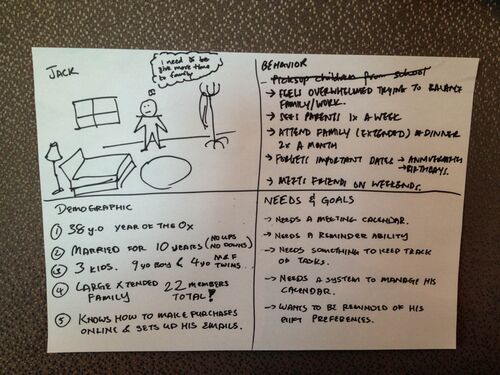 JACK
I need to be
give more time
to family
DEMOGRAPHIC
① 38 y.o YEAR OF THE OX
② MARRIED FOR 10 YEARS (NO UPS
NO DOWNS)
③ 3 KIDS. 9yo BOY & 4yo M&F
TWINS
④ LARGE XTENDED 22 MEMBERS
FAMILY TOTAL!
⑤ KNOWS HOW TO MAKE PURCHASES
ONLINE & SETS UP HIS EMAILS.
BEHAVIOR
- Pickup children from school
→ FEELS OVERWHELMED TRYING TO BALANCE
FAMILY/WORK.
→ SEES PARENTS 1X A WEEK
→ ATTEND FAMILY (EXTENDED) DINNER
2X A MONTH
→ FORGETS IMPORTANT DATES → ANNIVERSARIES
→ BIRTHDAYS.
→ MEETS FRIENDS ON WEEKENDS.
NEEDS & GOALS
→ NEEDS A MEETING CALENDAR.
→ NEEDS A REMINDER ABILITY
→ NEEDS SOMETHING TO KEEP TRACK
OF TASKS.
→ NEEDS A SYSTEM TO MANAGE HIS
CALENDAR.
→ WANTS TO BE REMINDED OF HIS
GIFT PREFERENCES.